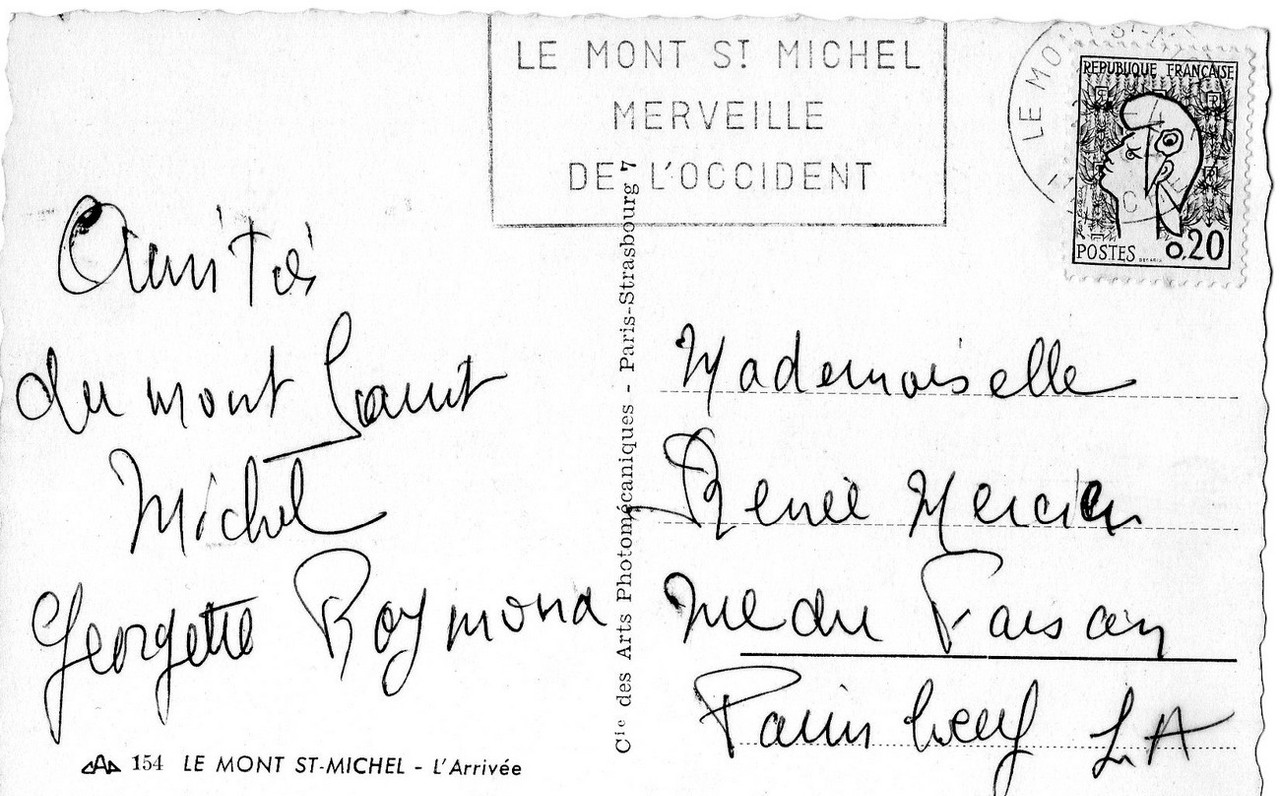 LE MONT ST MICHEL
MERVEILLE
DE L'OCCIDENT
LE MO
REPUBLIQUE FRANÇAISE
POSTES
0,20
Amitiés
du mont Saint
Michel
Georgette Raymond
Cie des Arts Photomécaniques - Paris-Strasbourg 7
Mademoiselle
Renée Mercier
rue du Faisan
Paimboeuf L A
154 LE MONT ST-MICHEL - L'Arrivée